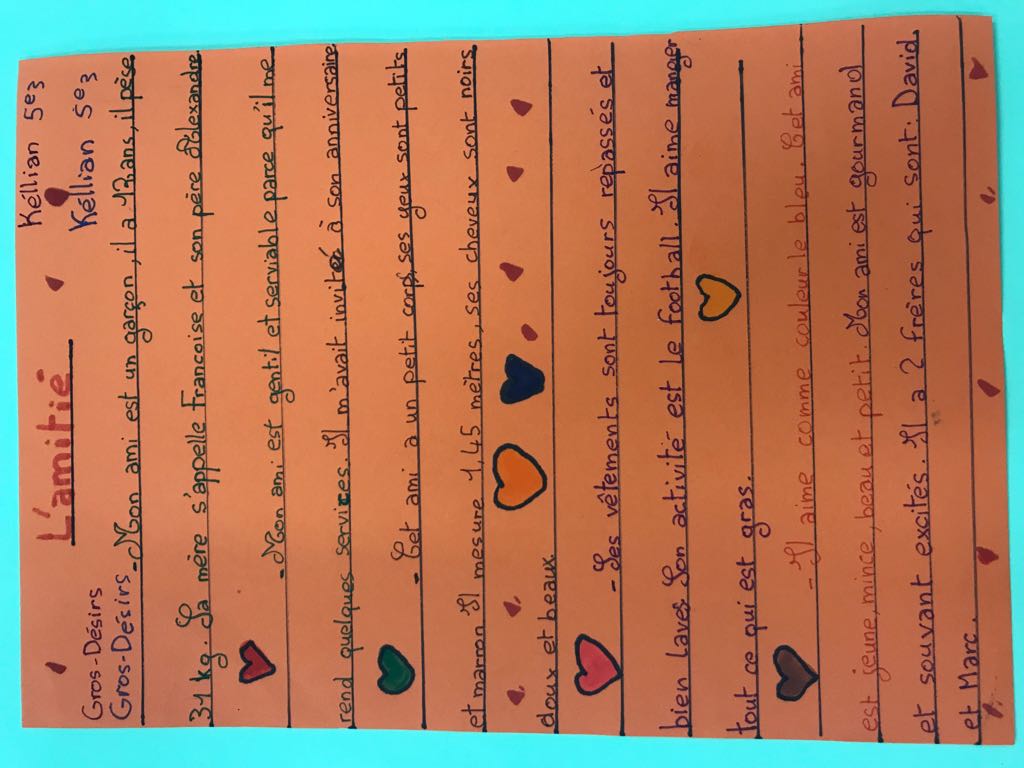 Gros-Désirs L'amitié Kéllian 5e3
Gros-Désirs Kéllian 5e3
-Mon ami est un garçon, il a 13 ans, il pése
31 kg. Sa mère s'appelle Francoise et son père Alexandre
-Mon ami est gentil et serviable parce qu'il me
rend quelques services. Il m'avait invité à son anniversaire
- Cet ami a un petit corps, ses yeux sont petits
et marron Il mesure 1,45 mètres, ses cheveux sont noirs
doux et beaux.
- Ses vêtements sont toujours repassés et
bien laves Son activité est le football. Il aime manger
tout ce qui est gras.
- Il aime comme couleur le bleu. Cet ami
est jeune, mince, beau et petit. Mon ami est gourmand
et souvant excités. Il a 2 frères qui sont: David
et Marc.